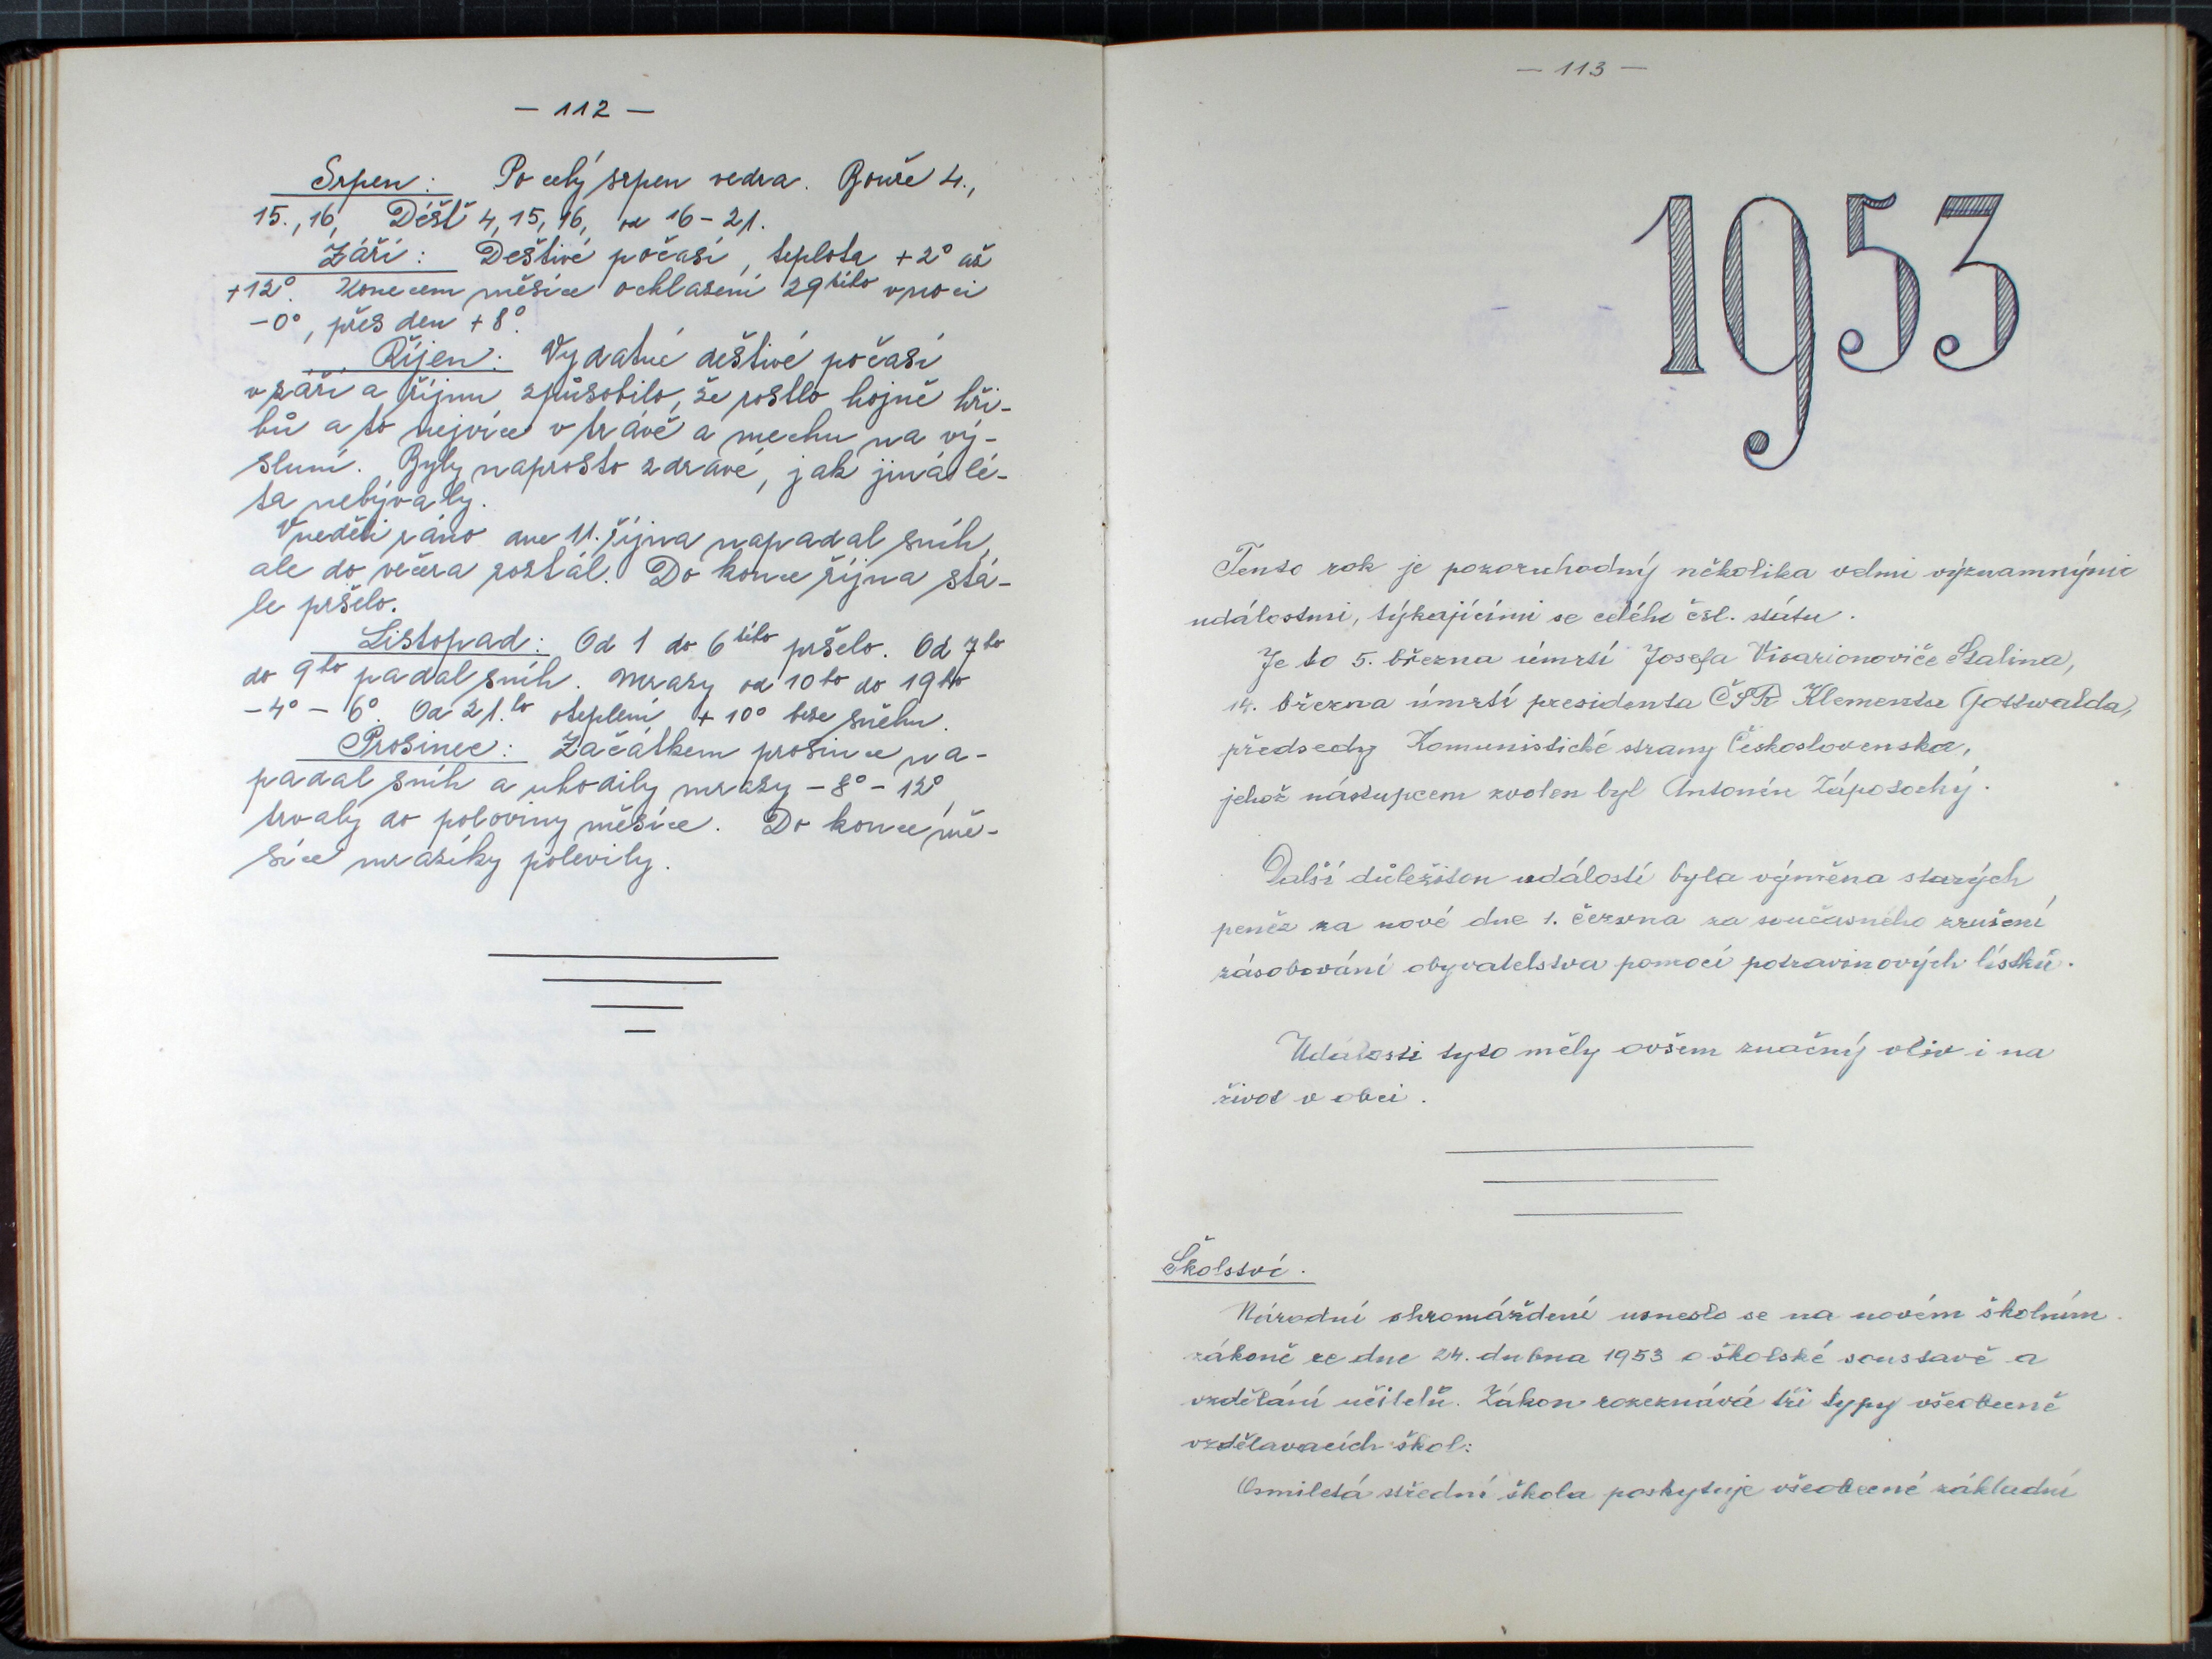 — 112 —
Srpen: Po celý srpen vedra. Bouře 4.,
15., 16, Déšť 4, 15, 16, od 16 – 21.
Září: Deštivé počasí, teplota +2° až
+12°. Koncem měsíce ochlazení 29tého v noci
-0°, přes den +8°.
Říjen: Vydatné deštivé počasí
v září a říjnu způsobilo, že rostlo hojně hři-
bů a to nejvíce v trávě a mechu na vý-
sluní. Byly naprosto zdravé, jak jiná lé-
ta nebývaly.
V neděli ráno dne 11. října napadal sníh,
ale do večera roztál. Do konce října stá-
le pršelo.
Listopad: Od 1 do 6tého pršelo. Od 7ho
do 9ho padal sníh. Mrazy od 10ho do 19ho
-4° – 6°. Od 21.ho oteplení +10° beze sněhu.
Prosinec: Začátkem prosince na-
padal sníh a uhodily mrazy – 8° – 12°,
trvaly do poloviny měsíce. Do konce mě-
síce mrazíky polevily.
— 113 —
1953
Tento rok je pozoruhodný několika velmi významnými
událostmi, týkajícími se celého čsl. státu.
Je to 5. března úmrtí Josefa Visarionoviče Stalina,
14. března úmrtí presidenta ČSR Klementa Gottwalda,
předsedy Komunistické strany Československa,
jehož nástupcem zvolen byl Antonín Zápotocký.
Další důležitou událostí byla výměna starých
peněz za nové dne 1. června za současného zrušení
zásobování obyvatelstva pomocí potravinových lístků.
Události tyto měly ovšem značný vliv i na
život v obci.
Školství.
Národní shromáždění usneslo se na novém školním
zákoně ze dne 24. dubna 1953 o školské soustavě a
vzdělání učitelů. Zákon rozeznává tři typy všeobecně
vzdělavacích škol:
Osmiletá střední škola poskytuje všeobecné základní